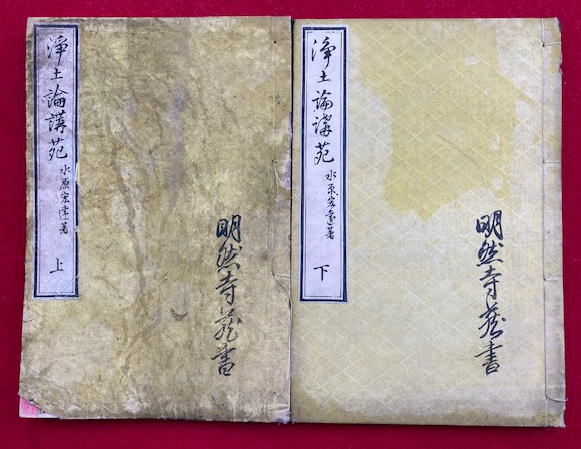 淨土論講苑 水原宏遠著 上
明然寺蔵書
淨土論講苑 水原宏遠著 下
明然寺蔵書